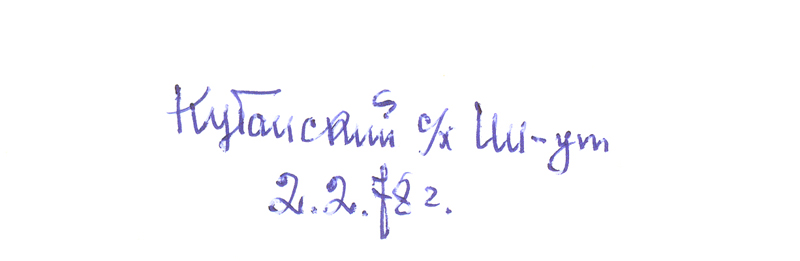 Кутаиский с/х Ин-ут
2.2.78 г.